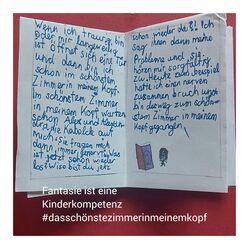 Wenn ich traurig bin
oder mir langweilig
ist öffnet sich eine Tür
und dann bin ich
schon im schönsten
Zimmer in meinem Kopf.
Im schönsten Zimmer
in meinem Kopf warten
schon Alex und
die Kabolck auf
mich. Sie fragen mich
dann immer
ist jetzt schon wieder
los? Wiso bist du jetz
schon wieder da? Ich
sag ihnen dann meine
Probleme und sie
hören mir sorgfältig
zu. Heute zum beispiel
hatte ich einen nerven
zusammen bruch und
bin deswegen zum schön
sten Zimmer in meinem
Kopf gegangen
Fantasie ist eine
Kinderkompetenz
#dasschönstezimmerinmeinemkopf